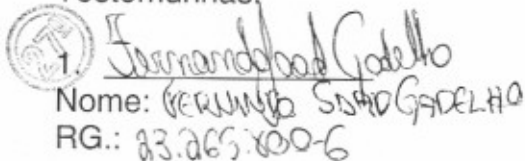 Testemunhas:
1. Fernando Saad Gadelho
Nome: FERNANDO SAAD GADELHO
RG.: 23.265.800-6